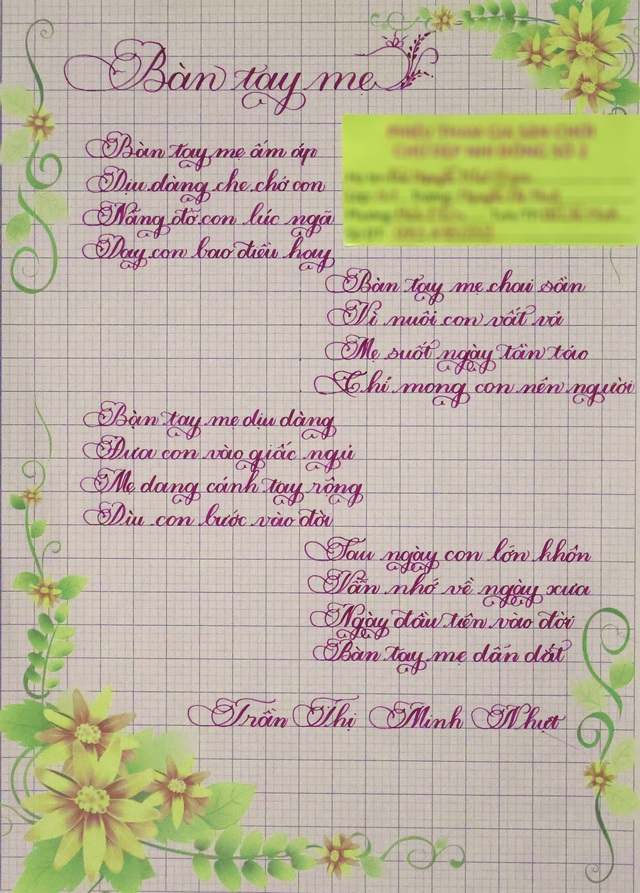 Bàn tay mẹ
Bàn tay mẹ ấm áp
Dịu dàng che chở con
Nâng đỡ con lúc ngã
Dạy con bao điều hay
Bàn tay mẹ chai sần
Vì nuôi con vất vả
Mẹ suốt ngày tần tảo
Chỉ mong con nên người
Bàn tay mẹ dịu dàng
Đưa con vào giấc ngủ
Mẹ dang cánh tay rộng
Dìu con bước vào đời
Sau ngày con lớn khôn
Vẫn nhớ về ngày xưa
Ngày đầu tiên vào đời
Bàn tay mẹ dẫn dắt
Trần Thị Minh Nhựt